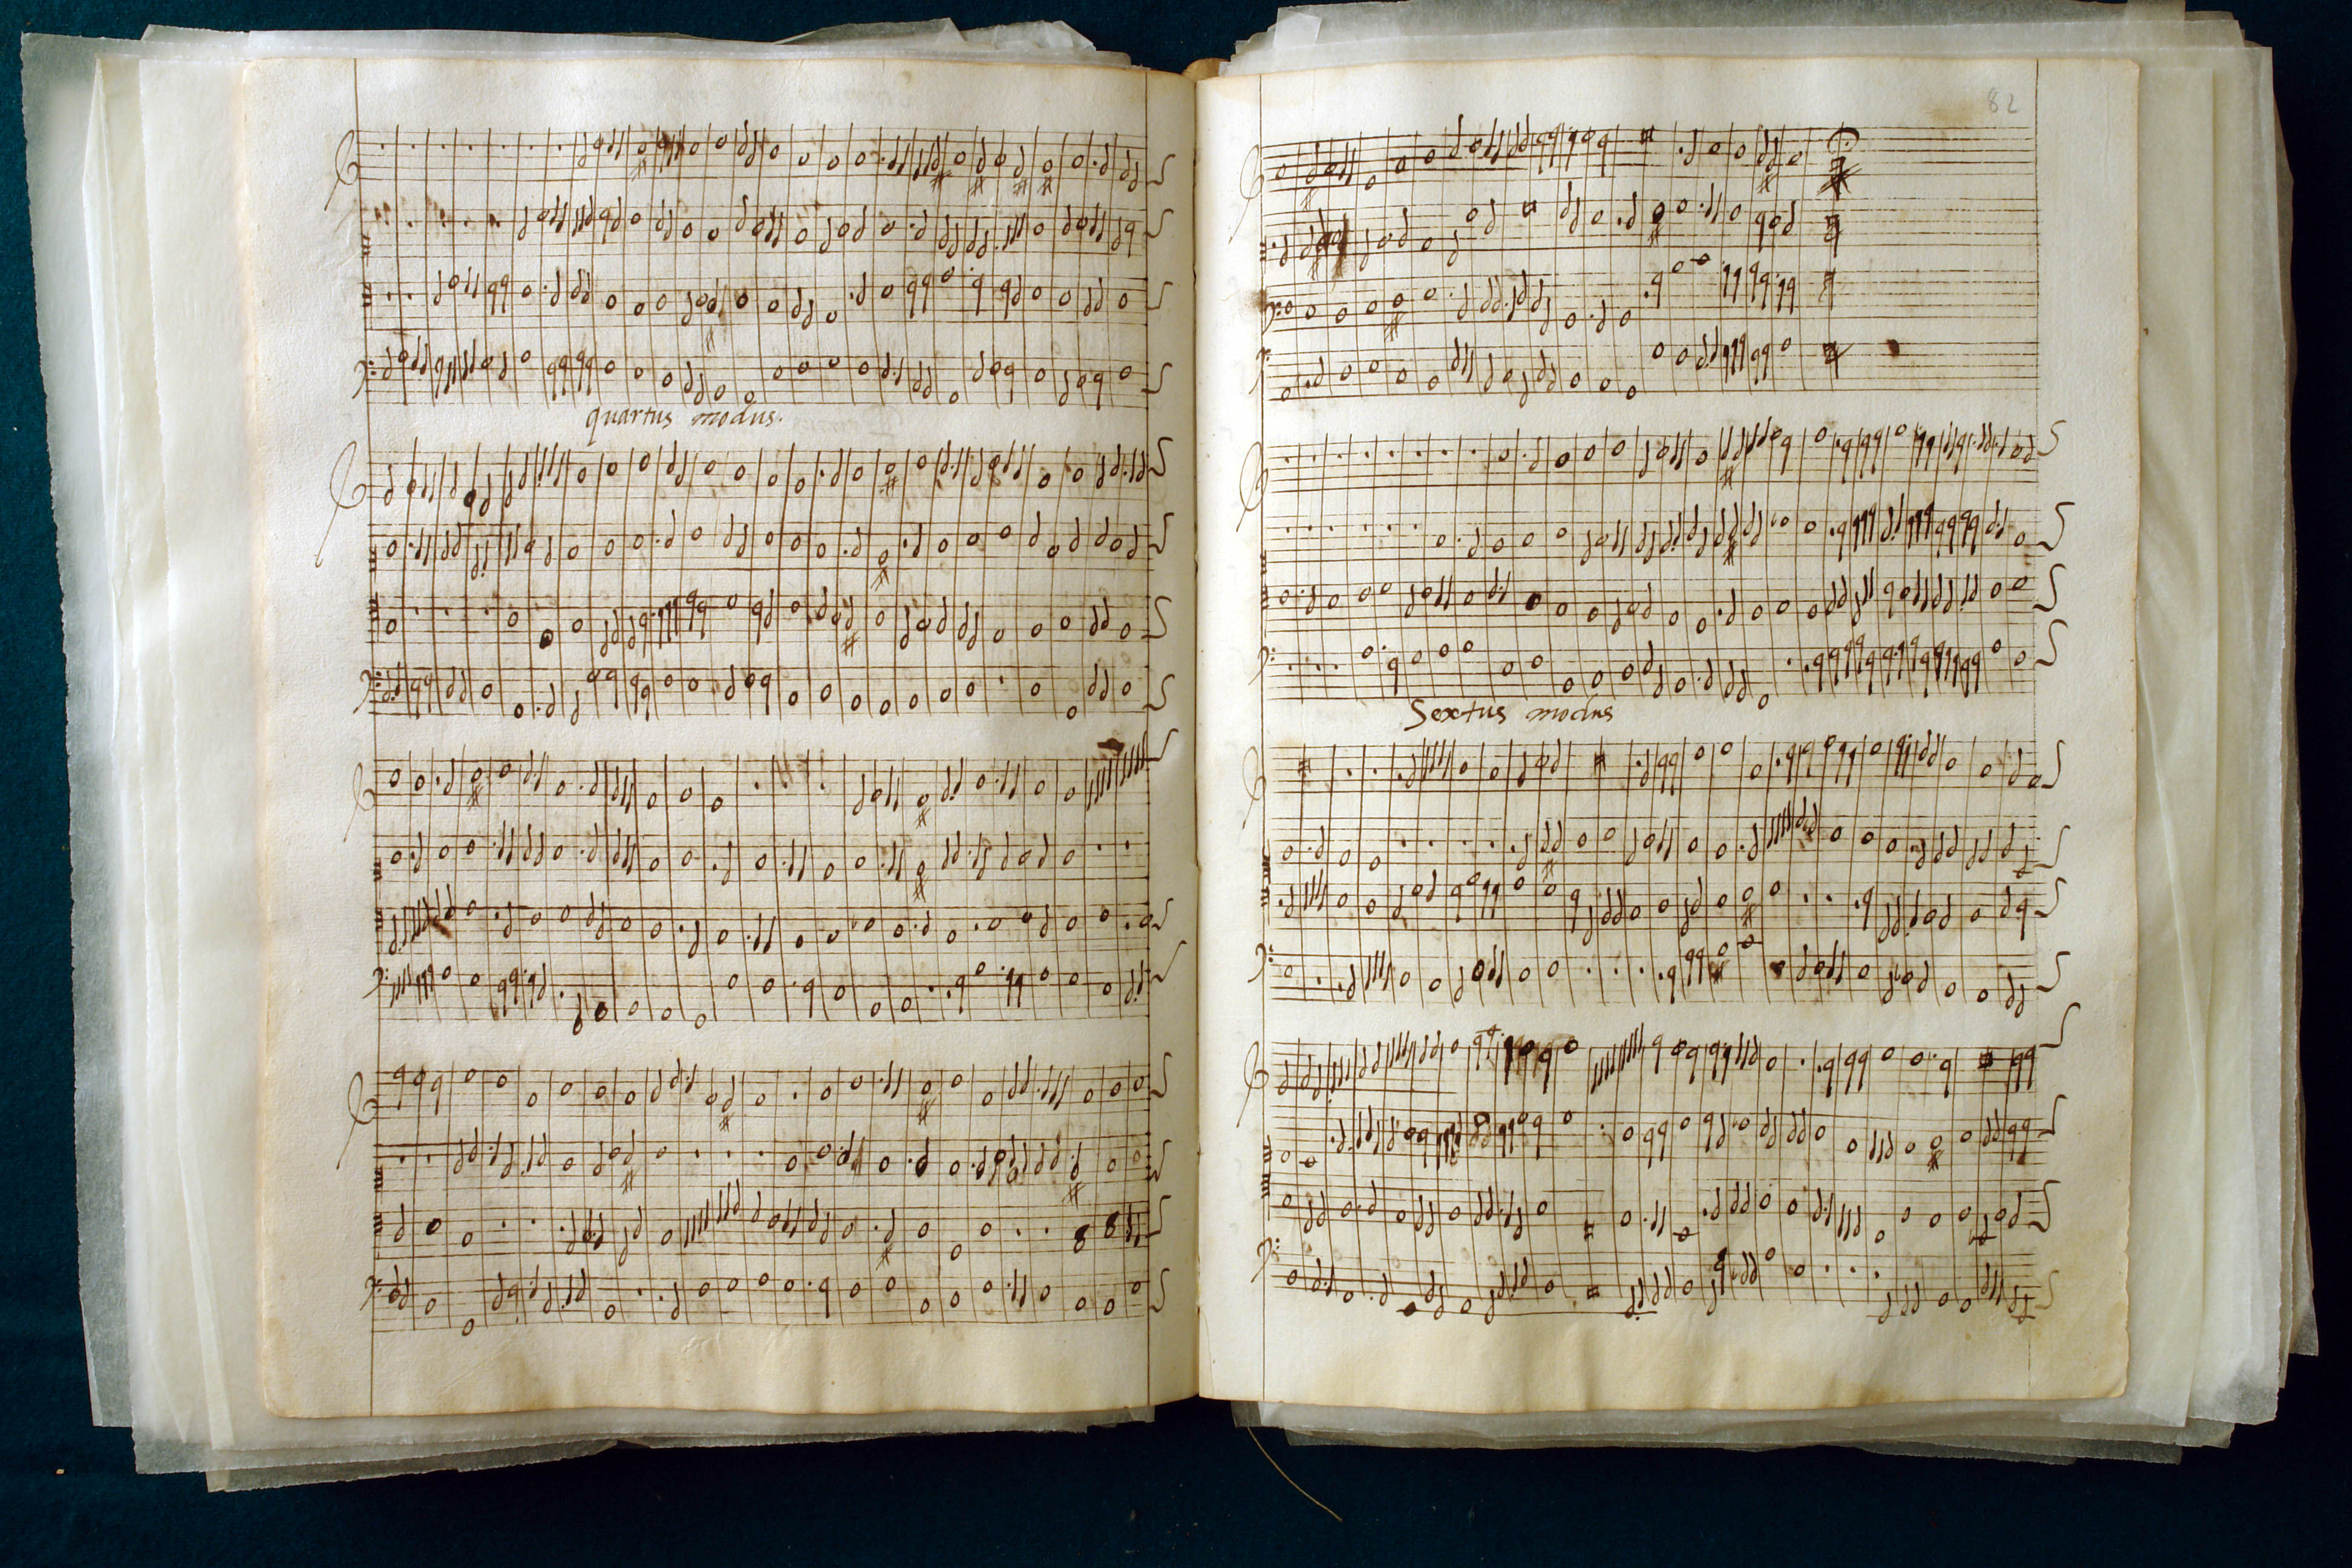 quartus modus.
82
Sextus modus